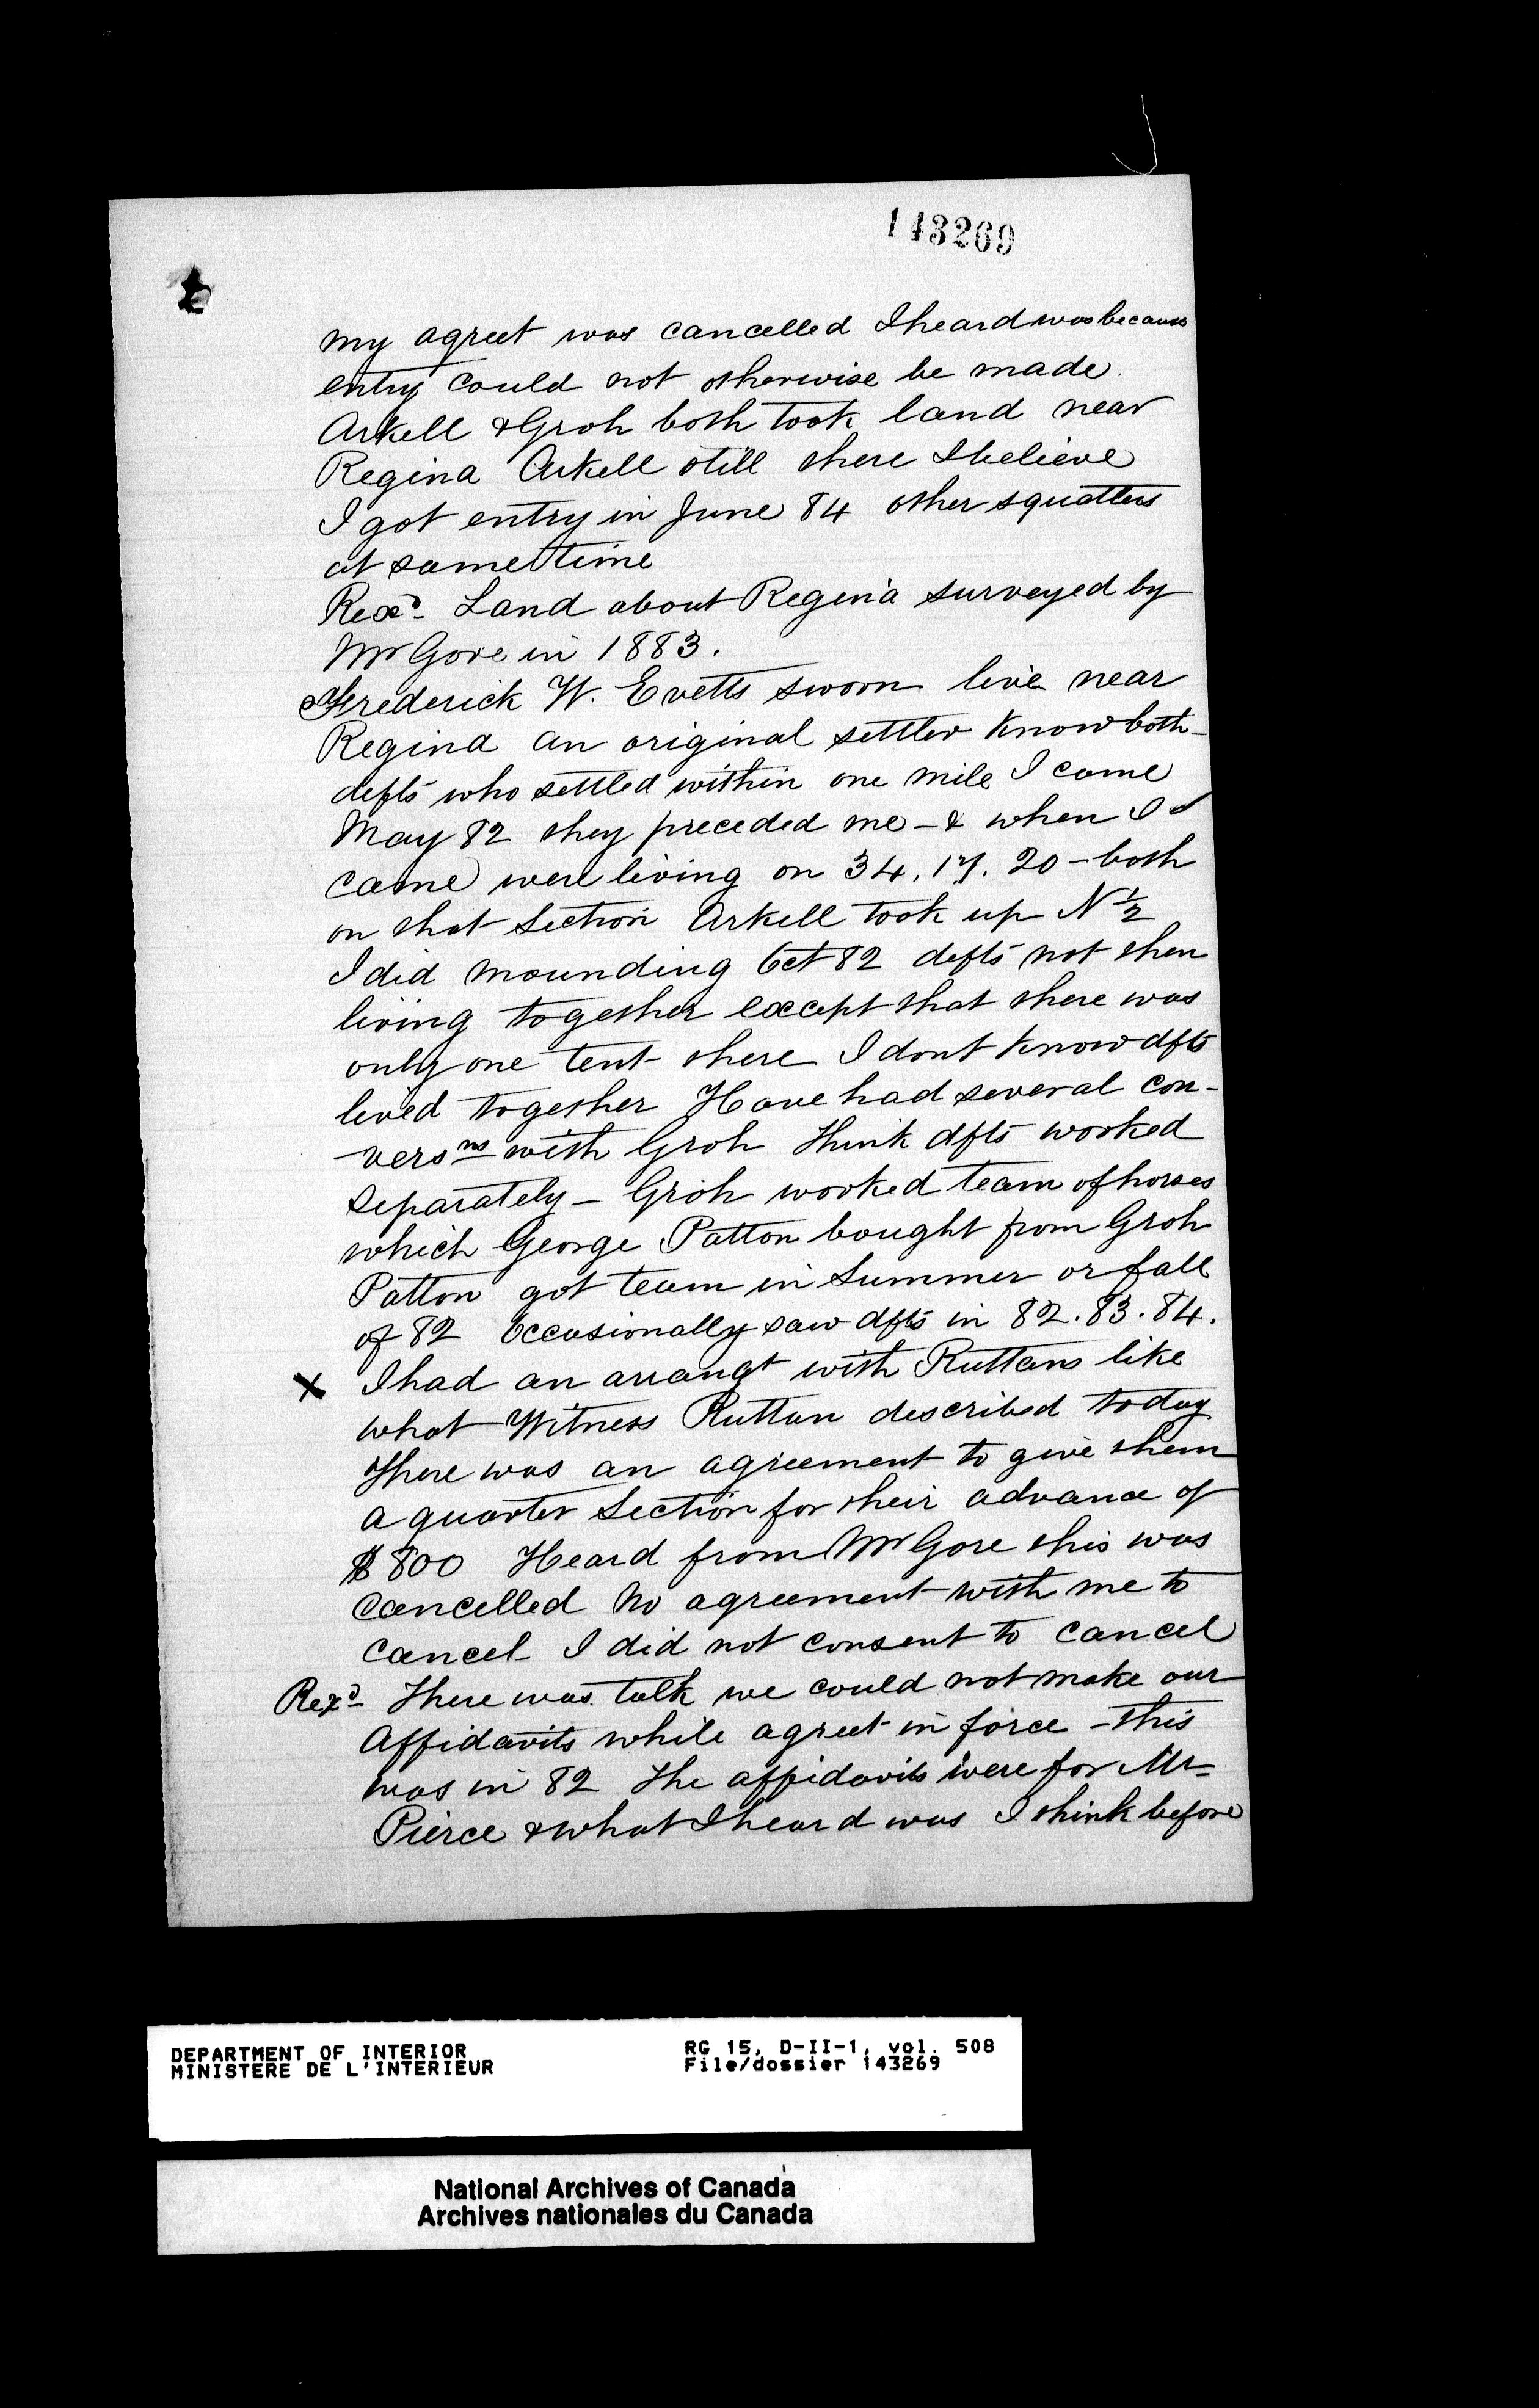 143269
my agreet was cancelled I heard was because
entry could not otherwise be made.
Arkell & Groh both took land near
Regina Arkell still there I believe
I got entry in June 84 other squatters
at same time
Rexd. Land about Regina surveyed by
Mr Gore in 1883.
Frederick W. Evetts sworn live near
Regina an original settler know both
defts who settled within one mile I came
May 82 they preceded me - & when I
came were living on 34. 17. 20 - both
on that Section Arkell took up N 1/2
I did mounding Oct 82 defts not then
living together except that there was
only one tent there I dont know dfts
lived together Have had several con-
-versns with Groh Think dfts worked
separately - Groh worked team of horses
which George Patton bought from Groh
Patton got team in Summer or fall
of 82 Occasionally saw dfts in 82. 83. 84.
X I had an arrangt with Ruttans like
what Witness Ruttan described today
There was an agreement to give them
a quarter Section for their advance of
$800 Heard from Mr Gore this was
cancelled No agreement with me to
cancel I did not consent to cancel
Rexd. There was talk we could not make our
Affidavits while agreet in force - this
was in 82 The affidavits were for Mr
Pierce & what I heard was I think before
DEPARTMENT OF INTERIOR
MINISTERE DE L'INTERIEUR
RG 15, D-II-1, vol. 508
File/dossier 143269
National Archives of Canada
Archives nationales du Canada